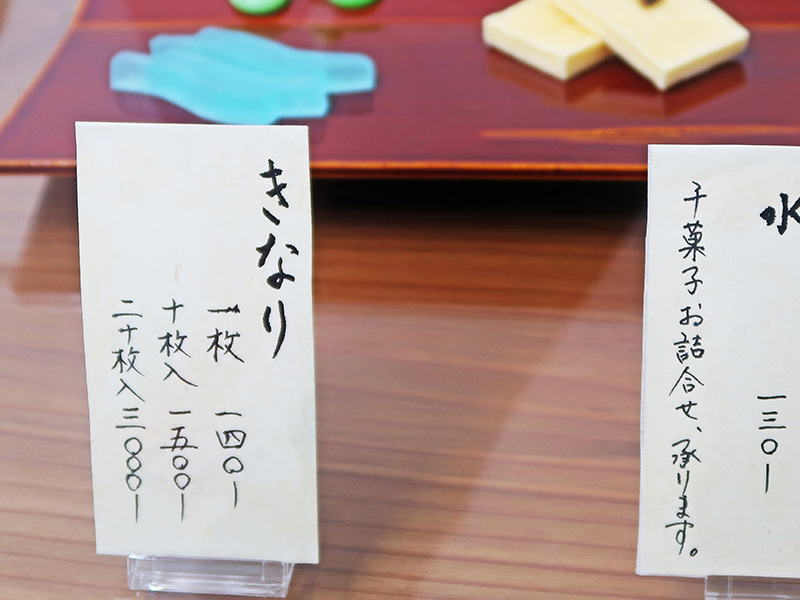 きなり
一枚 一四〇ー
十枚入 一五〇〇ー
二十枚入 三〇〇〇ー
水
一三〇ー
干菓子お詰合せ、承ります。